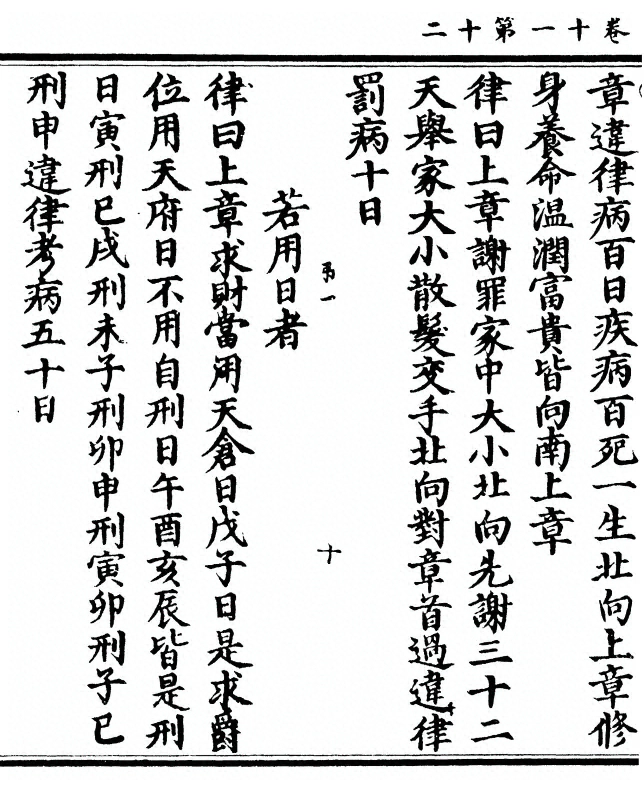 卷十一第十二
章違律病百日疾病百死一生北向上章修
身養命温潤富貴皆向南上章
律曰上章謝罪家中大小北向先謝三十二
天舉家大小散髮交手北向對章首過違律
罰病十日
弟一
十
若用日者
律曰上章求財當用天倉日戊子日是求爵
位用天府日不用自刑日午酉亥辰皆是刑
日寅刑巳戌刑未子刑卯申刑寅卯刑子巳
刑申違律考病五十日